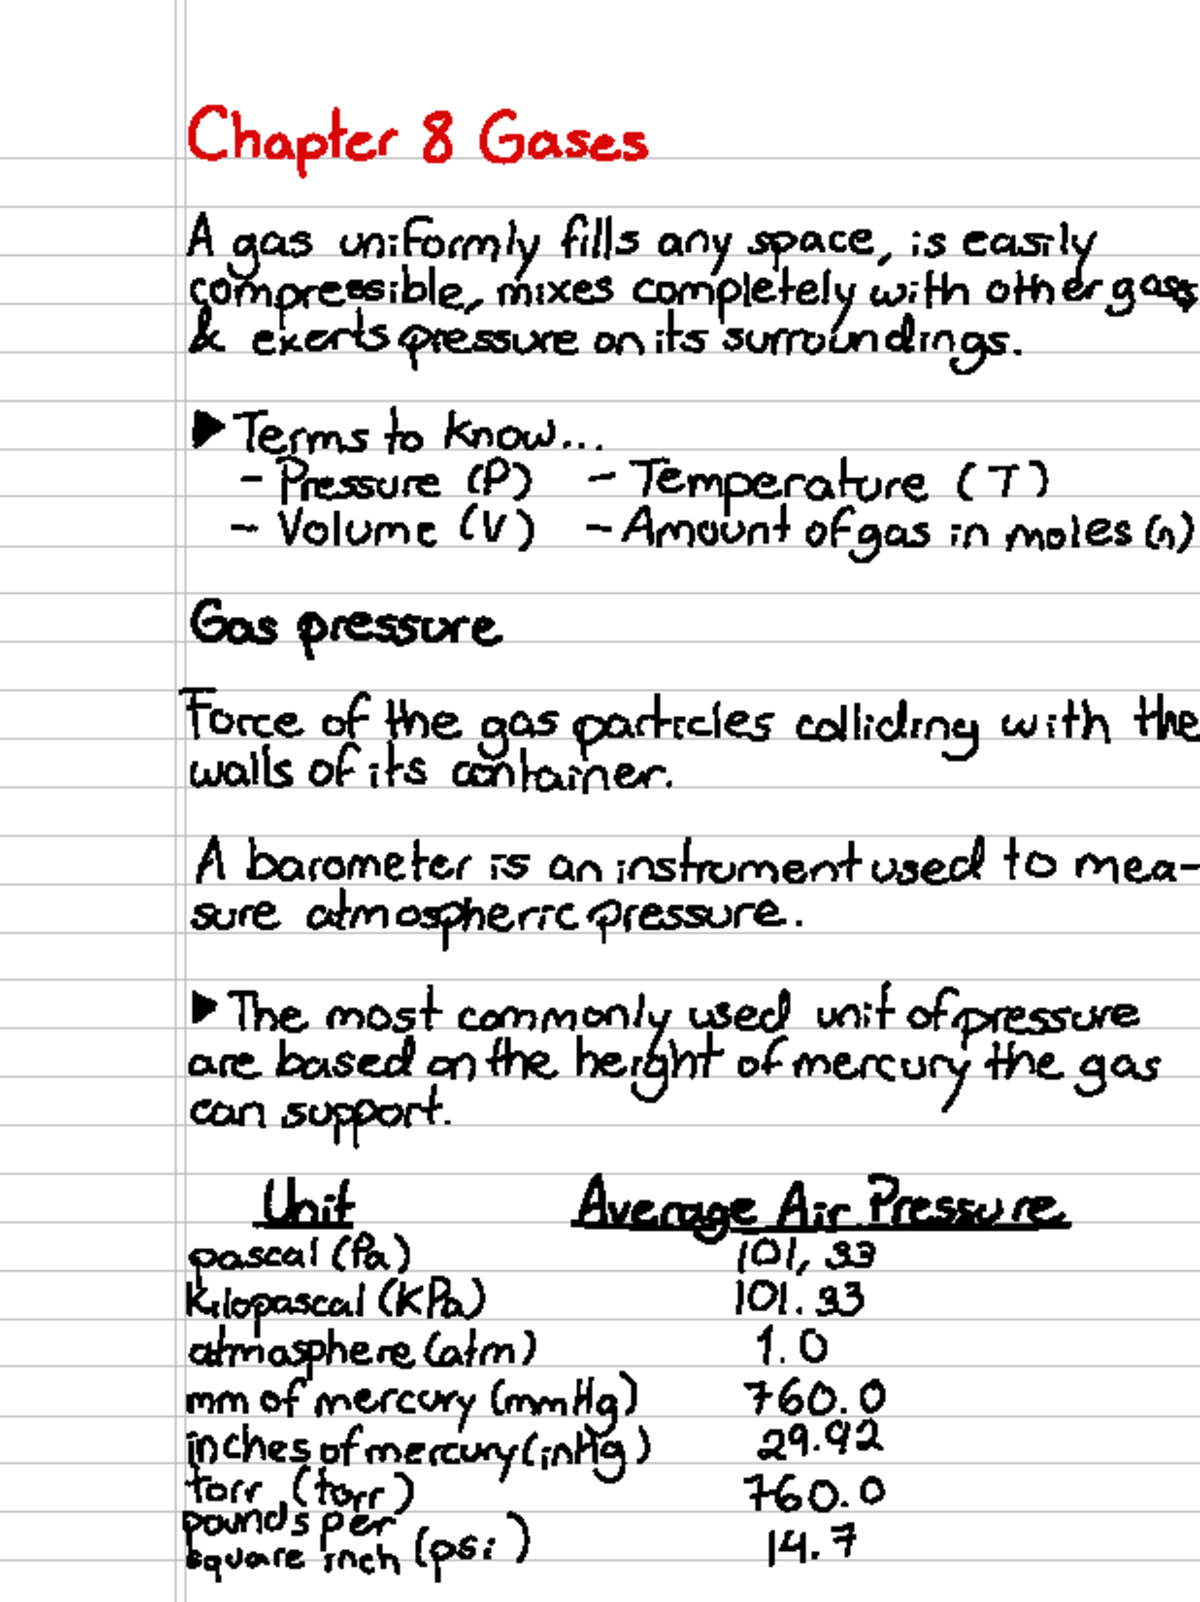 Chapter 8 Gases
A gas uniformly fills any space, is easily
compressible, mixes completely with other gases
& exerts pressure on its surroundings.
▶ Terms to know...
- Pressure (P) - Temperature (T)
- Volume (V) - Amount of gas in moles (n)
Gas pressure
Force of the gas particles colliding with the
walls of its container.
A barometer is an instrument used to mea-
sure atmospheric pressure.
▶ The most commonly used unit of pressure
are based on the height of mercury the gas
can support.
Unit Average Air Pressure
pascal (Pa) 101, 33
kilopascal (KPa) 101.33
atmosphere (atm) 1.0
mm of mercury (mmHg) 760.0
inches of mercury (inHg) 29.92
torr (torr) 760.0
pounds per
square inch (psi) 14.7